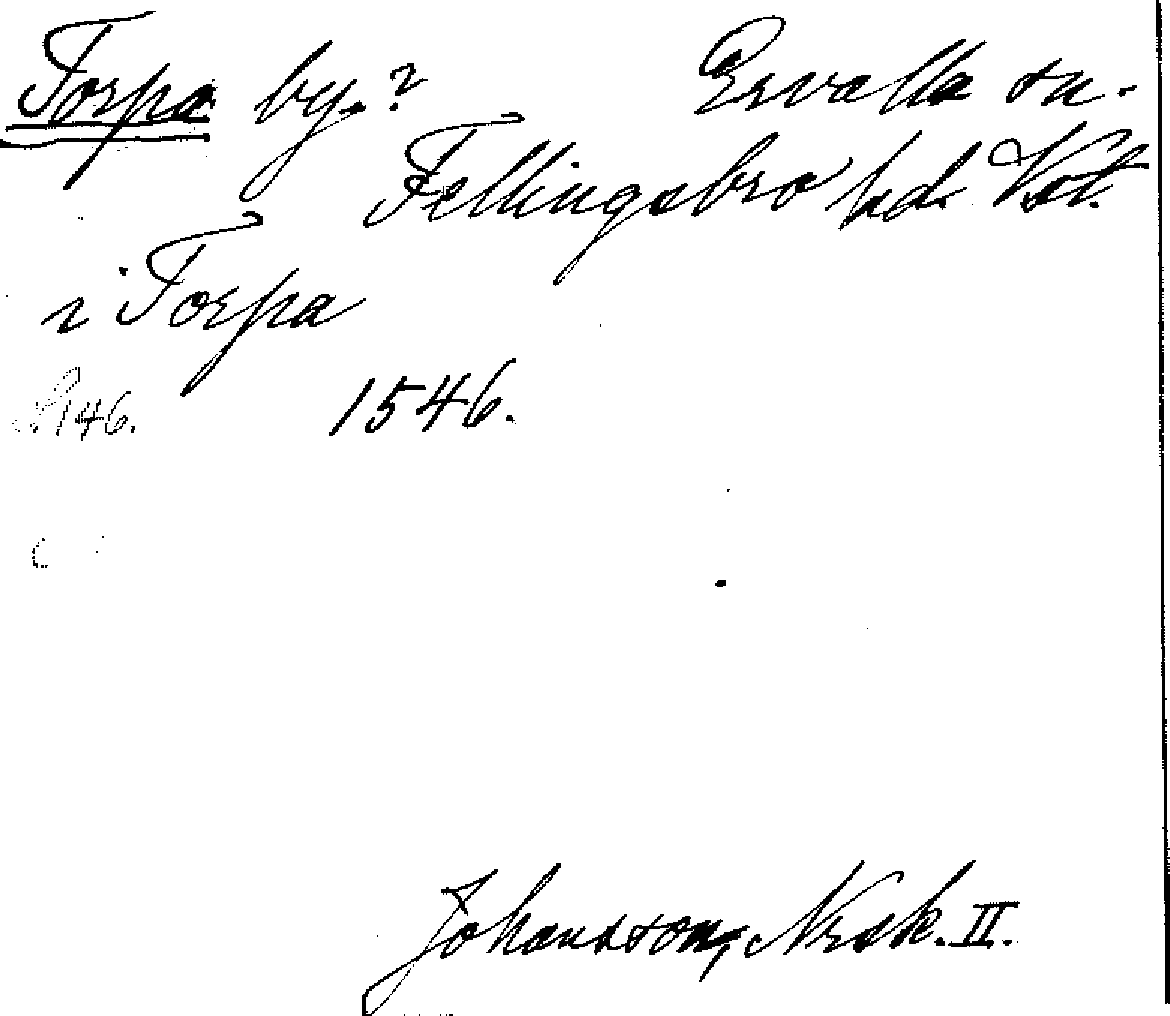 Torpa by.? Ervalla sn.
Fellingsbro hd. Vstl.
i Torpa
S. 146. 1546.
Johansson, Norsk. II.